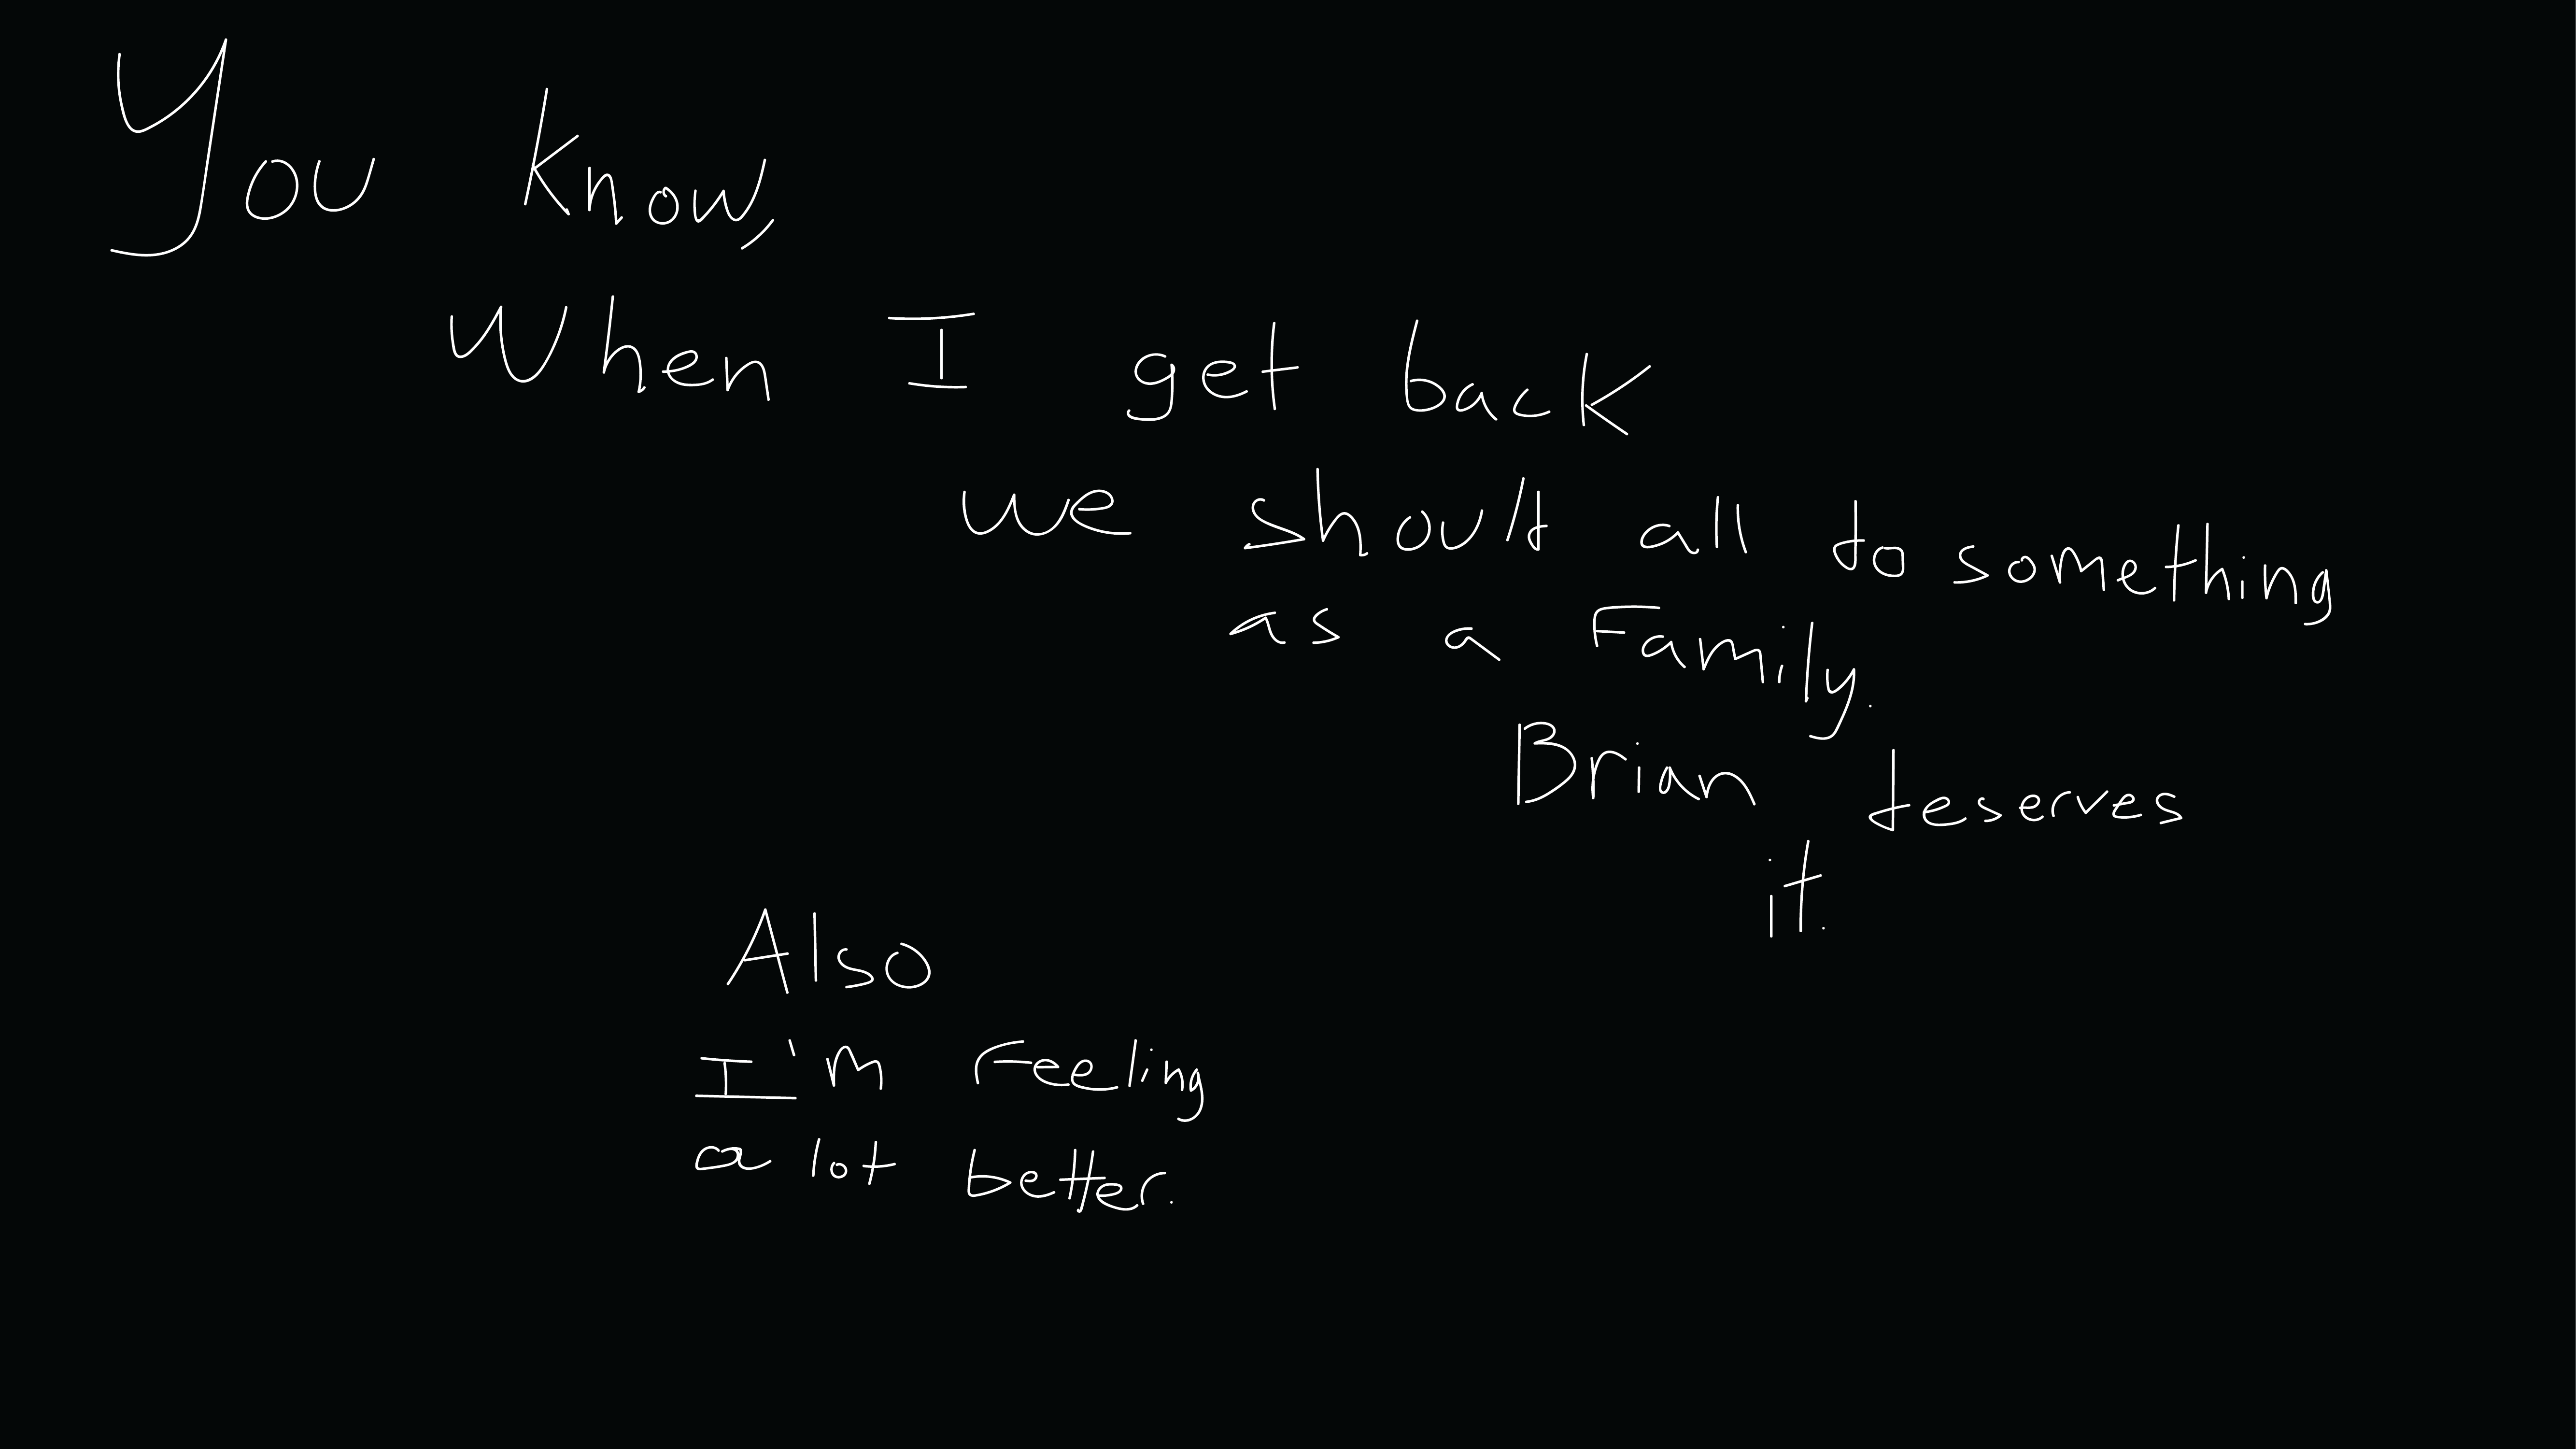 You know,
When I get back
we should all do something
as a Family.
Brian deserves
it.
Also
I'm Feeling
a lot better.